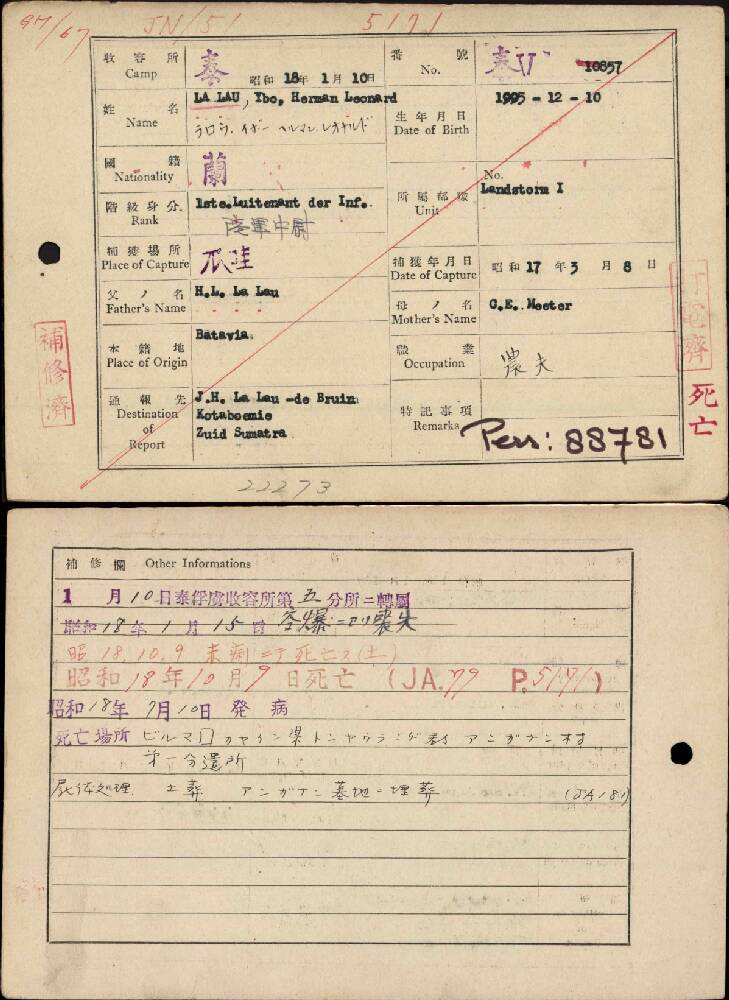 JN/51
5171
收容所
Camp
泰
昭和 18年 1月 10日
番號
No.
泰V
10857
姓名
Name
LA LAU, Ybo, Herman Leonard
生年月日
Date of Birth
1905 - 12 - 10
國籍
Nationality
蘭
階級身分
Rank
1ste.Luitenant der Inf.
陸軍中尉
所屬部隊
Unit
No.
Landstorm I
捕獲場所
Place of Capture
爪哇
捕獲年月日
Date of Capture
昭和 17 年 3 月 8 日
父ノ名
Father's Name
H.L. La Lau
母ノ名
Mother's Name
C.E. Meeter
本籍地
Place of Origin
Batavia
職業
Occupation
農夫
通報先
Destination
of
Report
J.H. La Lau -de Bruin
Kotaboemie
Zuid Sumatra
特記事項
Remarks
Pers: 88781
補修濟
死亡
22273
補修欄 Other Informations
1 月 10 日泰俘虜收容所第 五 分所ニ轉屬
昭和 18 年 1 月 15 日 空爆ニヨリ喪失
昭 18.10.9 赤痢ニテ死亡ス(土)
昭和 18 年 10 月 9 日死亡 (JA.79 P.5171)
昭和 18 年 9月 10日 発病
死亡場所 ビルマ アンガナン村
第一分遣所
死体処理 土葬 アンガナン墓地ニ埋葬